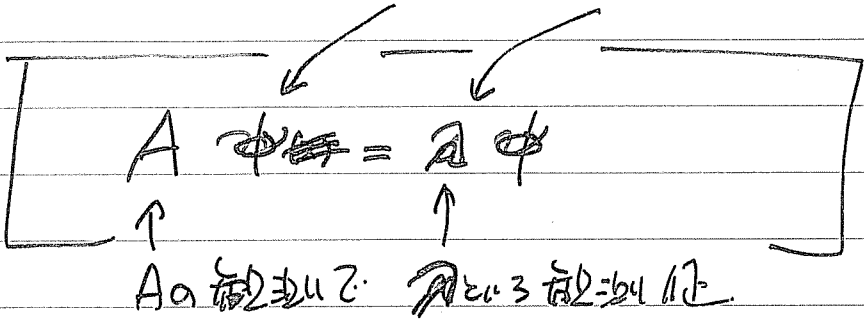 A φ = a φ
Aの観測で aという観測値